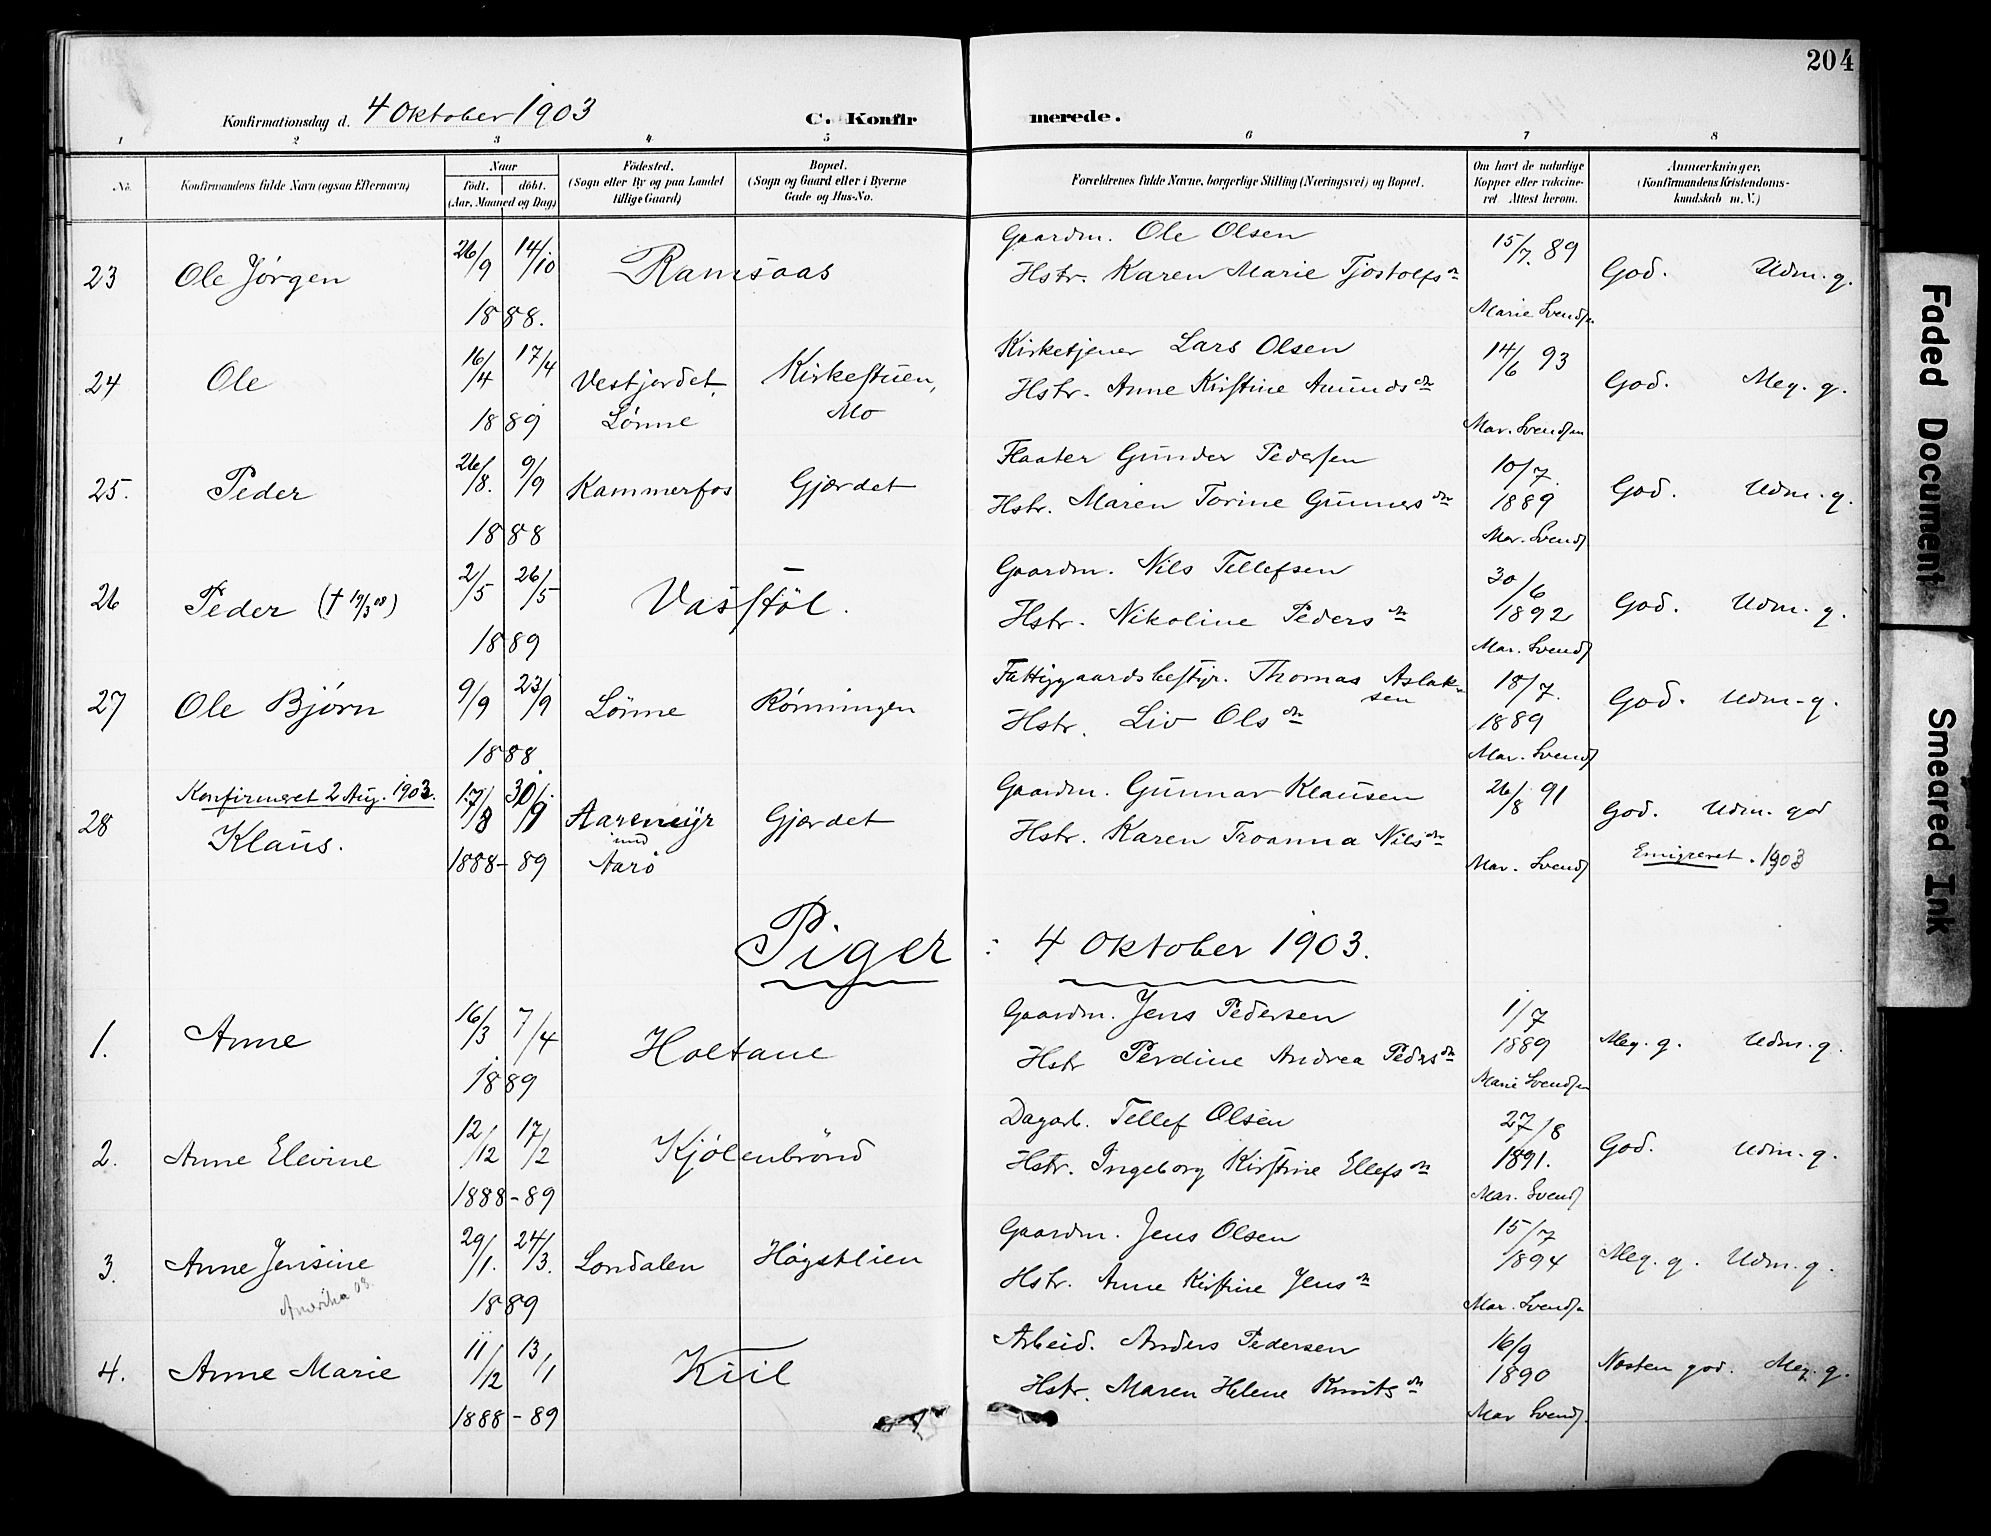 204
Konfirmationsdag d. 4 Oktober 1903
C. Konfirmerede.
1 2 3 4 5 6 7 8
No. Konfirmandens fulde Navn (ogsaa Efternavn) Naar födt. döbt. (Aar, Maaned og Dag) Födested. (Sogn eller By og paa Landet tillige Gaard) Bopæl. (Sogn og Gaard eller i Byerne Gade og Hus-No. Forældrenes fulde Navne, borgerlige Stilling (Næringsvei) og Bopæl. Om havt de naturlige Kopper eller vakcineret Attest herom. Anmærkninger. (Konfirmandens Kristendomskundskab m. V.)
23 Ole Jørgen 26/9 14/10 1888. Ramsaas
Gaardm. Ole Olsen
Hstr. Karen Marie Tjostolfsdn
15/7. 89 Marie Svendsn
God. Udm. g.
24 Ole 16/4 17/4 1889 Vestjordet, Lönne Kirkestuen, Mo
Kirketjener Lars Olsen
Hstr. Anne Kirstine Amundsdn
14/6 93 Mar. Svendsen
God. Meg. g.
25. Peder 26/8. 9/9 1888 Kammerfos Gjærdet
Flaater Gunder Pedersen
Hstr. Maren Torine Gunnersdn
10/7. 1889 Mar. Svends
God. Udm. g.
26 Peder († 19/3 08) 2/5 26/5 1889 Vasstöl.
Gaardm. Nils Tellefsen
Hstr. Nikoline Pedersdn
30/6 1892 Mar. Svends
God. Udm. g.
27 Ole Bjørn 9/9 23/9 1888. Lönne Rønningen
Fattiggaardsbestyr. Thomas Aslaksen
Hstr. Liv Olsdn
18/7. 1889 Mar. Svends
God. Udm. g.
Konfirmeret 2 Aug. 1903.
28 Klaus. 17/8 30/9 1888-89 Gjærdet
Aarö
Gaardm. Gunnar Klausen
Hstr. Karen Troanna Nilsdn
26/8 91 Mar. Svends
God. Udm. god
Emigreret. 1903
Piger : 4 Oktober 1903.
1. Anne 16/3 7/4 1889 Holtane
Gaardm. Jens Pedersen
Hstr Perdine Andrea Pedrsdn
1/7 1889 Marie Svendsen
Meg. g. Udm. g.
2. Anne Elevine 12/12 17/2 1888-89 Kjølenbrønd
Dagarb. Tellef Olsen
Hstr. Ingeborg Kirstine Ellefsdn
27/8 1891. Mar. Svends
God. Udm. g.
3. Anne Jensine 29/1. 24/3. 1889 Londalen Høgstlien
Amerika 03.
Gaardm. Jens Olsen
Hstr. Anne Kirstine Jensdn
15/7 1894 Mar. Svendsn
Meg. g. Udm. g.
4. Anne Marie 11/12 13/1 1888-89 Kiil
Arbeid. Anders Pedersen
Hstr. Maren Helene Knutsdn
16/9 1890 Mar Svends.
Næsten god. Meg. g.
Faded Document
Smeared Ink